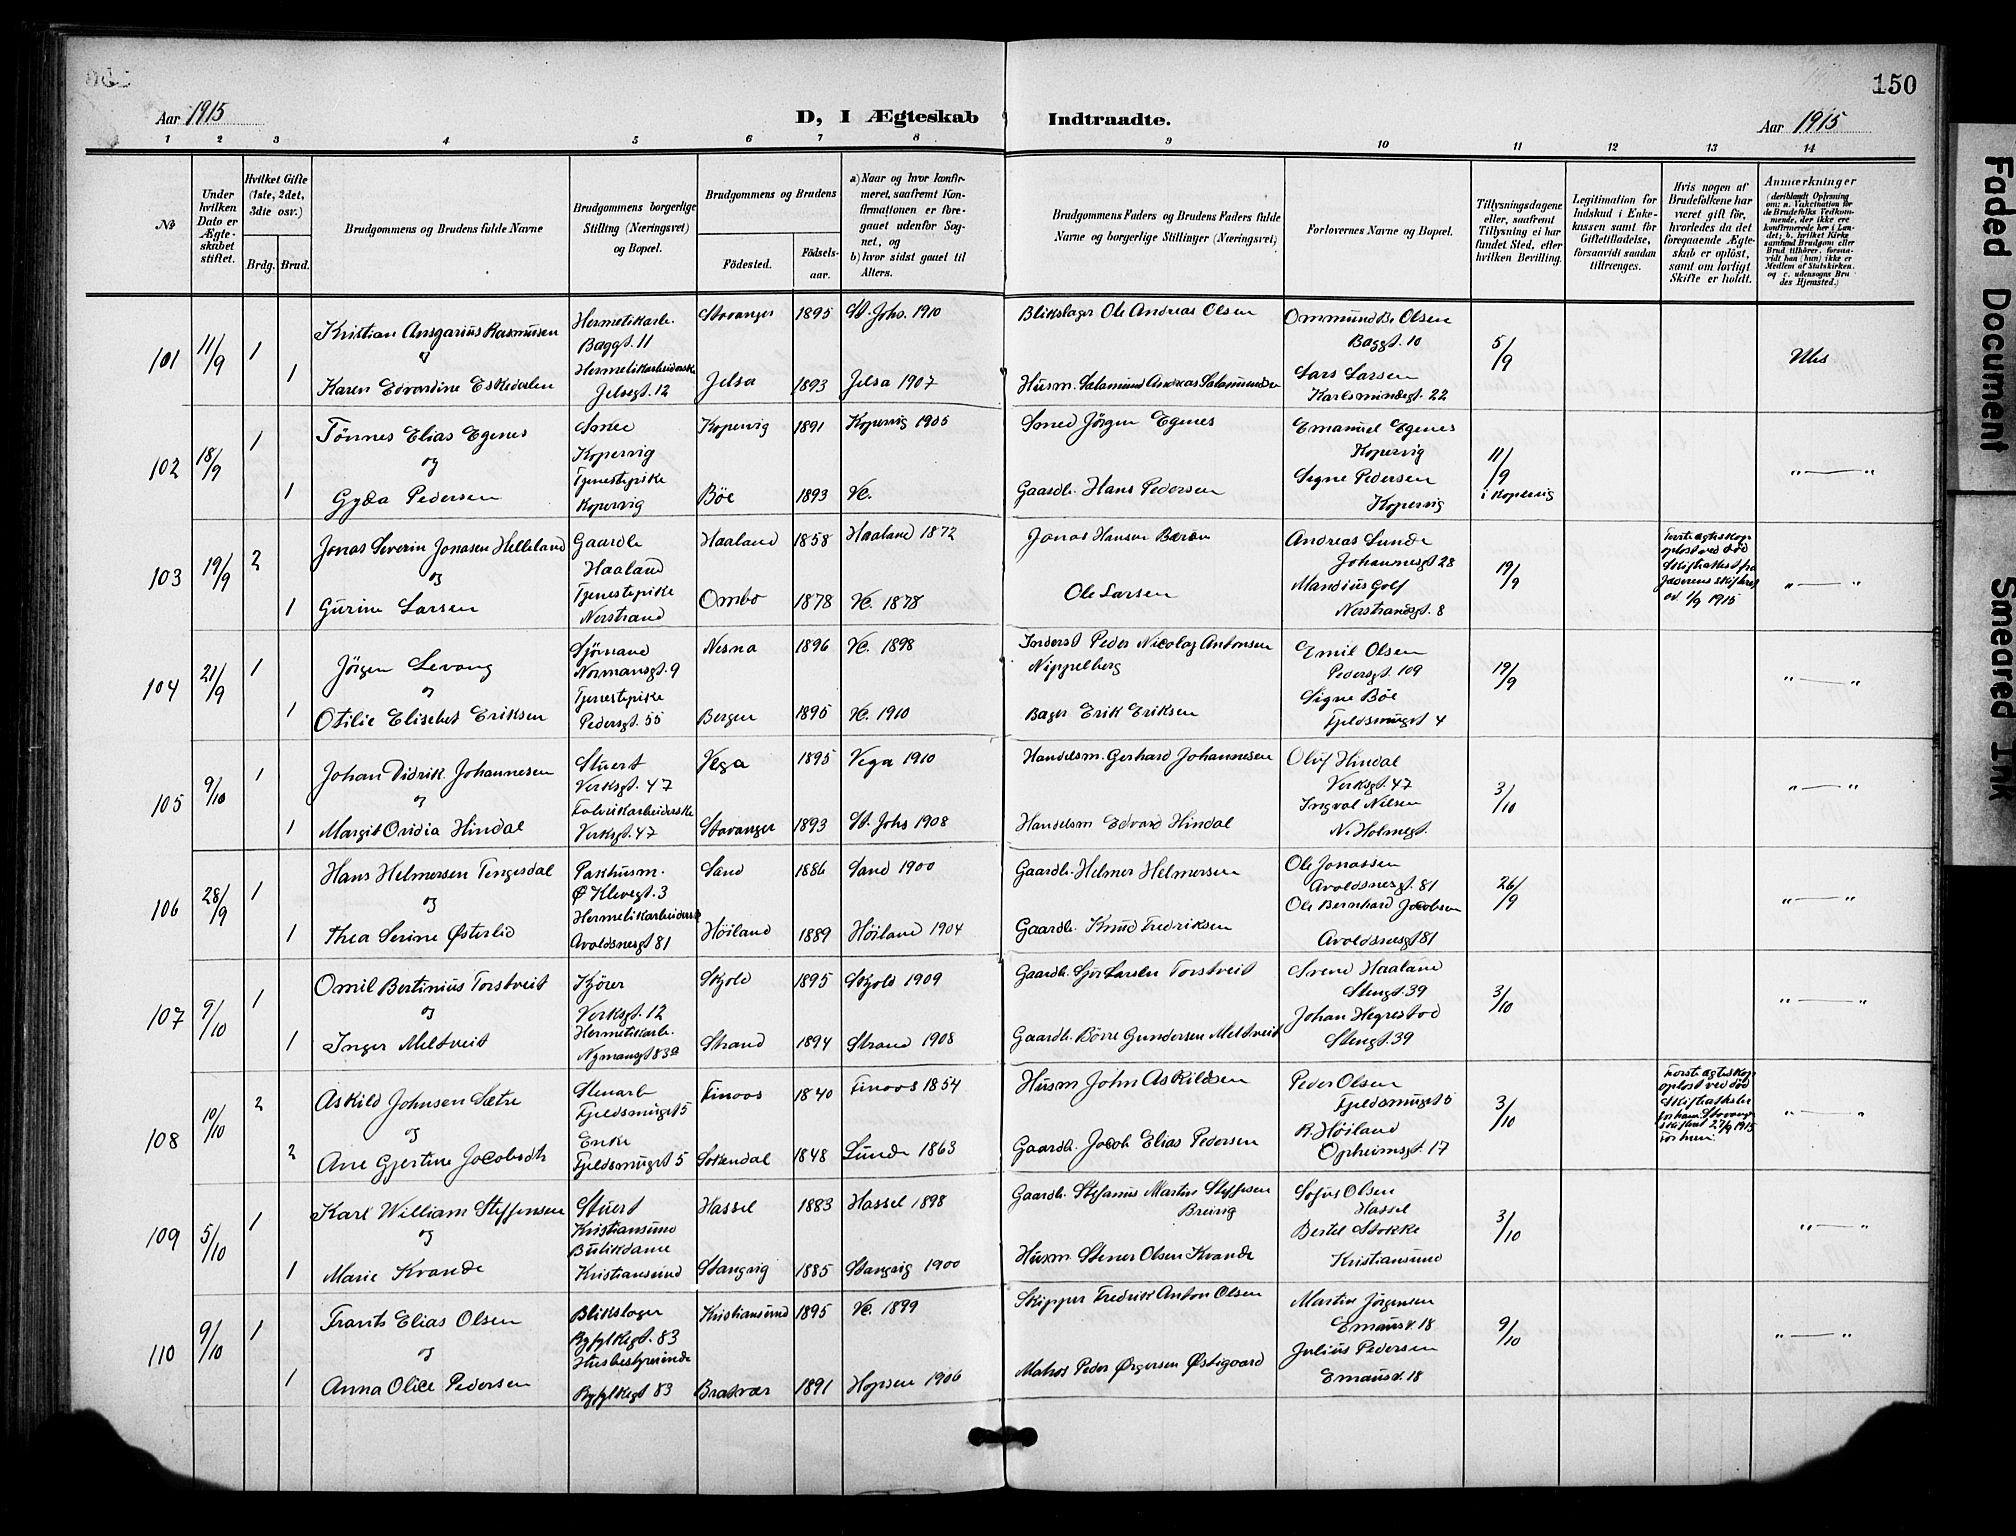 150
Aar 1915
D, I Ægteskab
Indtraadte.
Aar 1915
1 2 3 4 5 6 7 8 9 10 11 12 13 14
№
Under hvilken Dato er Ægteskabet stiftet.
Hvilket Gifte (1ste, 2det, 3die osv.)
Brdg. Brud.
Brudgommens og Brudens fulde Navne
Brudgommens borgerlige Stilling (Næringsvei) og Bopæl.
Brudgommens og Brudens
Fødested.
Fødselsaar.
a) Naar og hvor konfirmeret, saafremt Konfirmationen er foregaaet udenfor Sognet, og
b) hvor sidst gaaet til Alters.
Brudgommens Faders og Brudens Faders fulde Navne og borgerlige Stillinger (Næringsvei)
Forlovernes Navne og Bopæl.
Tillysningsdagene eller, saafremt Tillysning ei har fundet Sted, efter hvilken Bevilling.
Legitimation for Indskud i Enkekassen samt for Giftetilladelse, forsaavidt saadan tiltrænges.
Hvis nogen af Brudefolkene har været gift før, hvorledes da det foregaaende Ægteskab er opløst, samt om lovligt Skifte er holdt.
Anmerkninger
(deriblandt Oplysning om: a. Vakcination for de Brudefolks Vedkommende, der ikke ere konfirmerede her i Landet; b. hvilket Kirkesamfund Brudgom eller Brud tilhører, forsaavidt han (hun) ikke er Medlem af Statskirken, og c. udensogns Brudes Hjemsted.)
101 11/9 1 Kristian Ansgarius Rasmusen Hermetikarb. Baggt. 11 Stavanger 1895 St. Johs. 1910 Blikslager Ole Andreas Olsen Ommund B. Olsen Baggt. 10 5/9
og
1 Karen Edvardine Eskedalen Hermetikarbeiderske Jelsegt. 12 Jelsa 1893 Jelsa 1907 Husm. Salamund Andreas Salamundsen Lars Larsen Karlsmindegt. 22
102 18/9 1 Tönnes Elias Egenes Smed Kopervig Kopervig 1891 Kopervig 1905 Smed Jörgen Egenes Emanuel Egenes Kopervig 11/9 i Kopervig " — "
og
1 Gyda Pedersen Tjenestepike Kopervig Böe 1893 Vc. Gaardb. Hans Pedersen Signe Pedersen Kopervig
103 19/9 2 Jonas Severin Jonasen Helleland Gaardb Haaland Haaland 1858 Haaland 1872 Jonas Hansen Andreas Lunde Johannesgt 28 19/9 " — "
Første Ægteskap opløst ved død Skifteattest fra Jæderens skifteret av 1/9 1915
og
1 Gurine Larsen Tjenestepike Nerstrand Ombo 1878 Vc. 1878 Ole Larsen Mandius Golf Nerstrandsgt. 8
104 21/9 1 Jörgen Levang Sjömand Normansgt. 9 Nesna 1896 Vc. 1898 Inderst Peder Nicolaj Antonsen Nippelberg Emil Olsen Pedersgt. 109 19/9 " — "
og
1 Otilie Elisebet Eriksen Tjenestepike Pedersgt. 55 Bergen 1895 Vc. 1910 Bager Erik Eriksen Signe Böe Fjeldsmuget 4
105 9/10 1 Johan Didrik Johannesen Stuert Verksgt. 47 Vega 1895 Vega 1910 Handelsm. Gerhard Johannesen Oluf Hindal Verksgt. 47 3/10 " — "
og
1 Margit Oridia Hindal Fabrikarbeiderske Verksgt. 47 Stavanger 1893 St. Johs 1908 Handelsm Edvard Hindal Ingval Nilsen N. Holmegt.
106 28/9 1 Hans Helmersen Tengesdal Pakhusm. Ø Klevegt. 3 Sand 1886 Sand 1900 Gaardb. Helmer Helmersen Ole Jonassen Avaldsnesgt. 81 26/9 " — "
og
1 Thea Serine Østerlid Hermetikarbeiderske Avaldsnesgt 81 Höiland 1889 Höiland 1904 Gaardb. Knud Fredriksen Ole Bernhard Jacobsen Avaldsnesgt 81
107 9/10 1 Omil Bertinius Torstveit Kjörer Verksgt. 12 Skjold 1895 Skjold 1909 Gaardb. Larsen Torstveit Svend Haaland Stengt. 39 3/10 " — "
og
1 Inger Meltveit Hermetikarb. Nymansgt 83a Strand 1894 Strand 1908 Gaardb. Börre Gundersen Meltveit Johan Hegrestad Stengt. 39
108 10/10 2 Askild Johnsen Sætre Stenarb Fjeldsmuget 5 Finaas 1840 Finaas 1854 Husm John Askildsen Peder Olsen Fjeldsmuget 5 3/10 " — "
Første Ægteskap opløst ved død Skifteattester for ham Stavanger skifteret 27/9 1915 for hun
og
2 Ane Gjertine Jacobsdtr Enke Fjeldsmuget 5 Sokndal 1848 Lunde 1863 Gaardb. Jacob Elias Pedersen R. Höiland Opheimsgt. 17
109 5/10 1 Karl William Steffensen Stuert Kristiansund Hassel 1883 Hassel 1898 Gaardb. Stefanus Martin Steffesen Breivig Sofus Olsen Hassel 3/10 " — "
og
1 Marie Kvande Butikdame Kristiansund Stangvig 1885 Stangvig 1900 Husm Stener Olsen Kvande Bertel Stokke Kristiansund
110 9/10 1 Frants Elias Olsen Blikslager Ryfylkegt. 83 Kristiansund 1895 Vc. 1899 Skipper Fredrik Anton Olsen Martin Jörgensen Emausv. 18 9/10 " — "
og
1 Anna Olice Pedersen Husbestyrerinde Ryfylkegt 83 Bratvær 1891 Hopsen 1906 Matros Peder Ørgersen Østigaard Julius Pedersen Emausv. 18
Faded Document
Smeared Ink